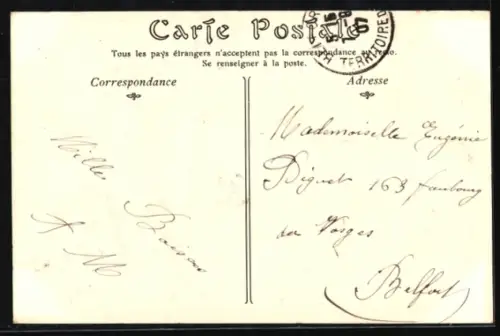 Carte Postale
Tous les pays étrangers n'acceptent pas la correspondance au recto.
Se renseigner à la poste.
Correspondance
Adresse
TERRITOIRE D
Mademoiselle Eugénie
163 faubourg
des Vosges
Belfort
Milles
Baisers
A M